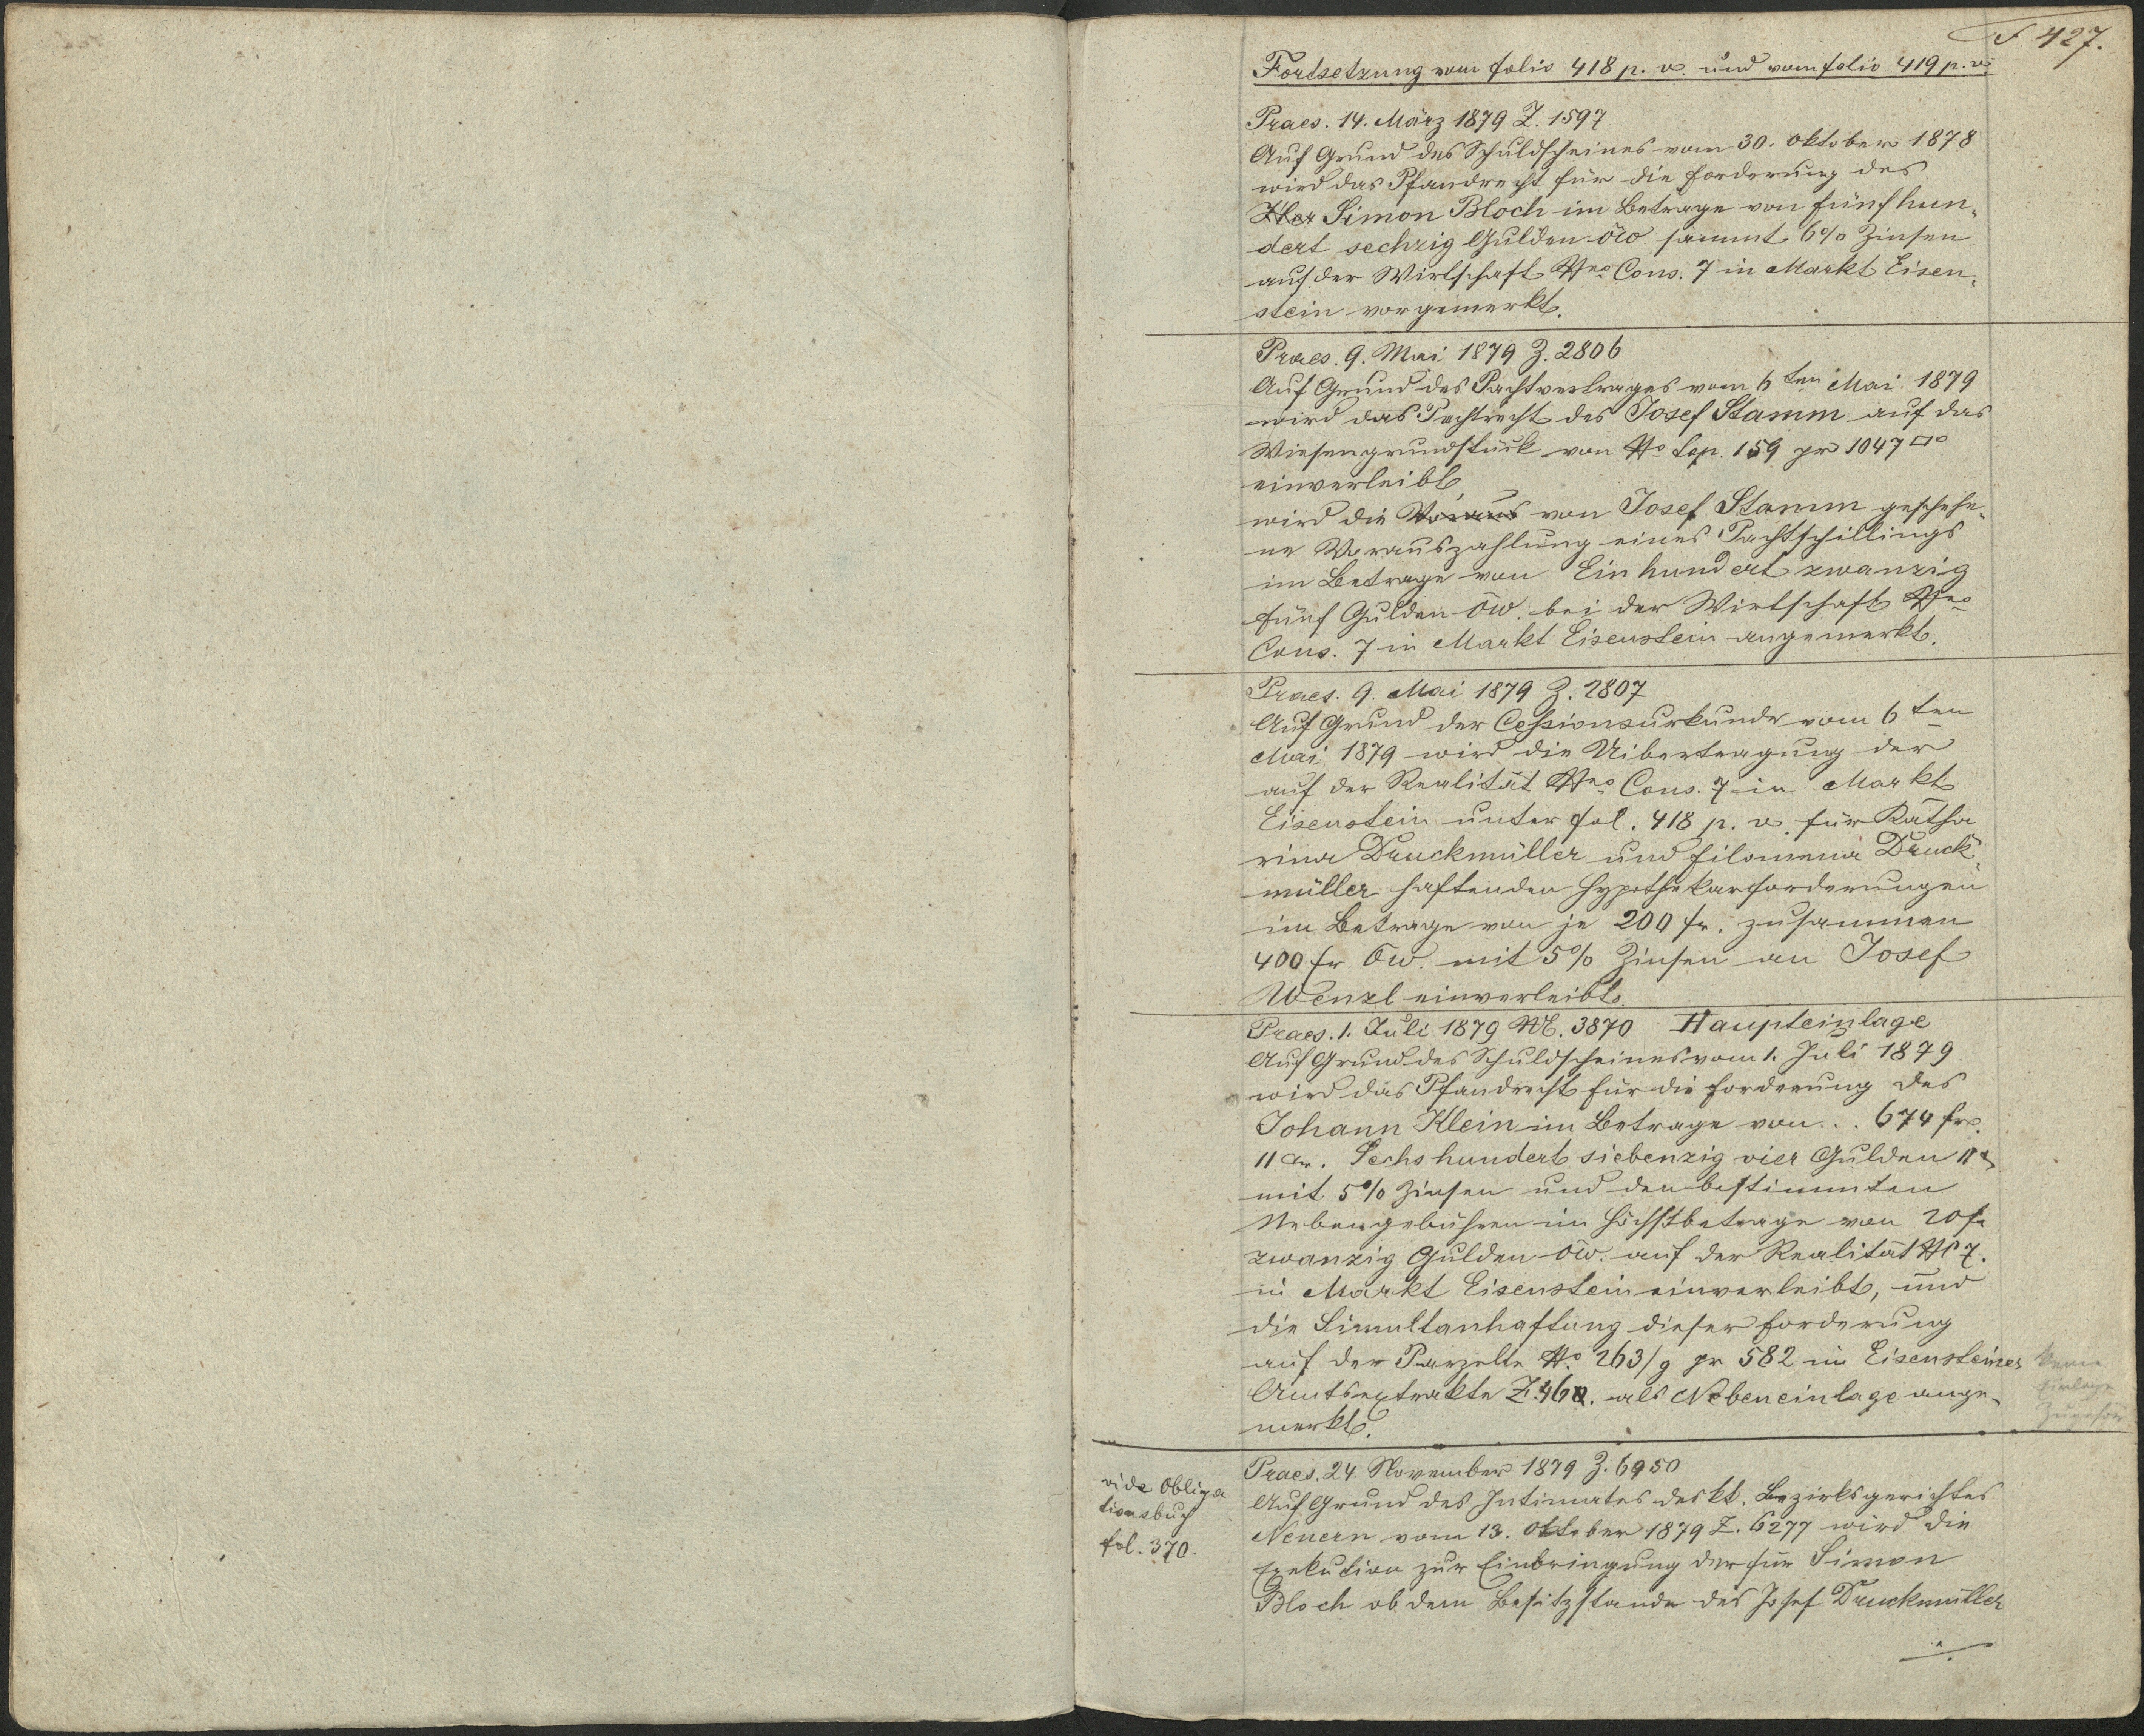 F 427.
Fortsetzung vom folio 418 p. v. und vom folio 419 p. v.
Praes. 14. März 1879 Z. 1597
Auf Grund des Schuldscheines vom 30. Oktober 1878
wird das Pfandrecht für die Forderung des
Simon Bloch im Betrage von fünfhun-
dert sechzig Gulden öw sammt 6% Zinsen
auf der Wirtschaft Nro Cons. 7 in Markt Eisen-
stein vorgemerkt.
Praes. 9. Mai 1879 Z. 2806
Auf Grund des Pachtvertrages vom 6ten Mai 1879
wird das Pachtrecht des Josef Stamm auf das
Wiesengrundstück von No top. 159 pr 1047 □°
einverleibt,
wird die Voraus von Josef Stamm geschehe-
ne Vorauszahlung eines Pachtschillings
im Betrage von Einhundert zwanzig
fünf Gulden öw. bei der Wirtschaft Nro
Cons. 7 in Markt Eisenstein angemerkt.
Praes. 9. Mai 1879 Z. 2807
Auf Grund der Cessionsurkunde vom 6ten
Mai 1879 wird die Uibertragung der
auf der Realität Nro Cons. 7 in Markt
Eisenstein unter fol. 418 p. v. für Katha
rina Druckmüller und Filomena Druck-
müller haftenden Hypothekarforderungen
im Betrage von je 200 fr. zusammen
400 fr öw. mit 5% Zinsen an Josef
Wenzl einverleibt.
Praes. 1. Juli 1879 NE. 3870 Haupteinlage
Auf Grund des Schuldscheines vom 1. Juli 1879
wird das Pfandrecht für die Forderung des
Johann Klein im Betrage von . . 674 fr.
11 xr. Sechshundert siebenzig vier Gulden 11 x
mit 5% Zinsen und den bestimmten
Nebengebühren im Höchstbetrage von 20 fr
zwanzig Gulden öw. auf der Realität No 7.
in Markt Eisenstein einverleibt, und
die Simultanhaftung dieser Forderung
auf der Parzelle No 263/g pr 582 im Eisensteiner
Amtsextrakte Z. 460. als Nebeneinlage ange-
merkt.
keine
Einlage
vide Obliga
tionsbuch
fol. 370.
Praes. 24. November 1879 Z. 6950
Auf Grund des Intimates des kk. Bezirksgerichtes
Neuern vom 13. Oktober 1879 Z. 6277 wird die
Exekution zur Einbringung der für Simon
Bloch ob dem Besitzstande des Josef Druckmüller
./.